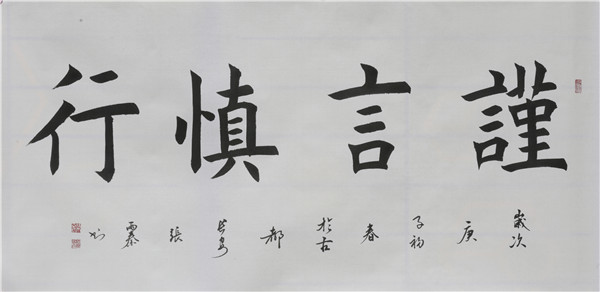 謹言慎行
歲次庚子初春於古都長安張书